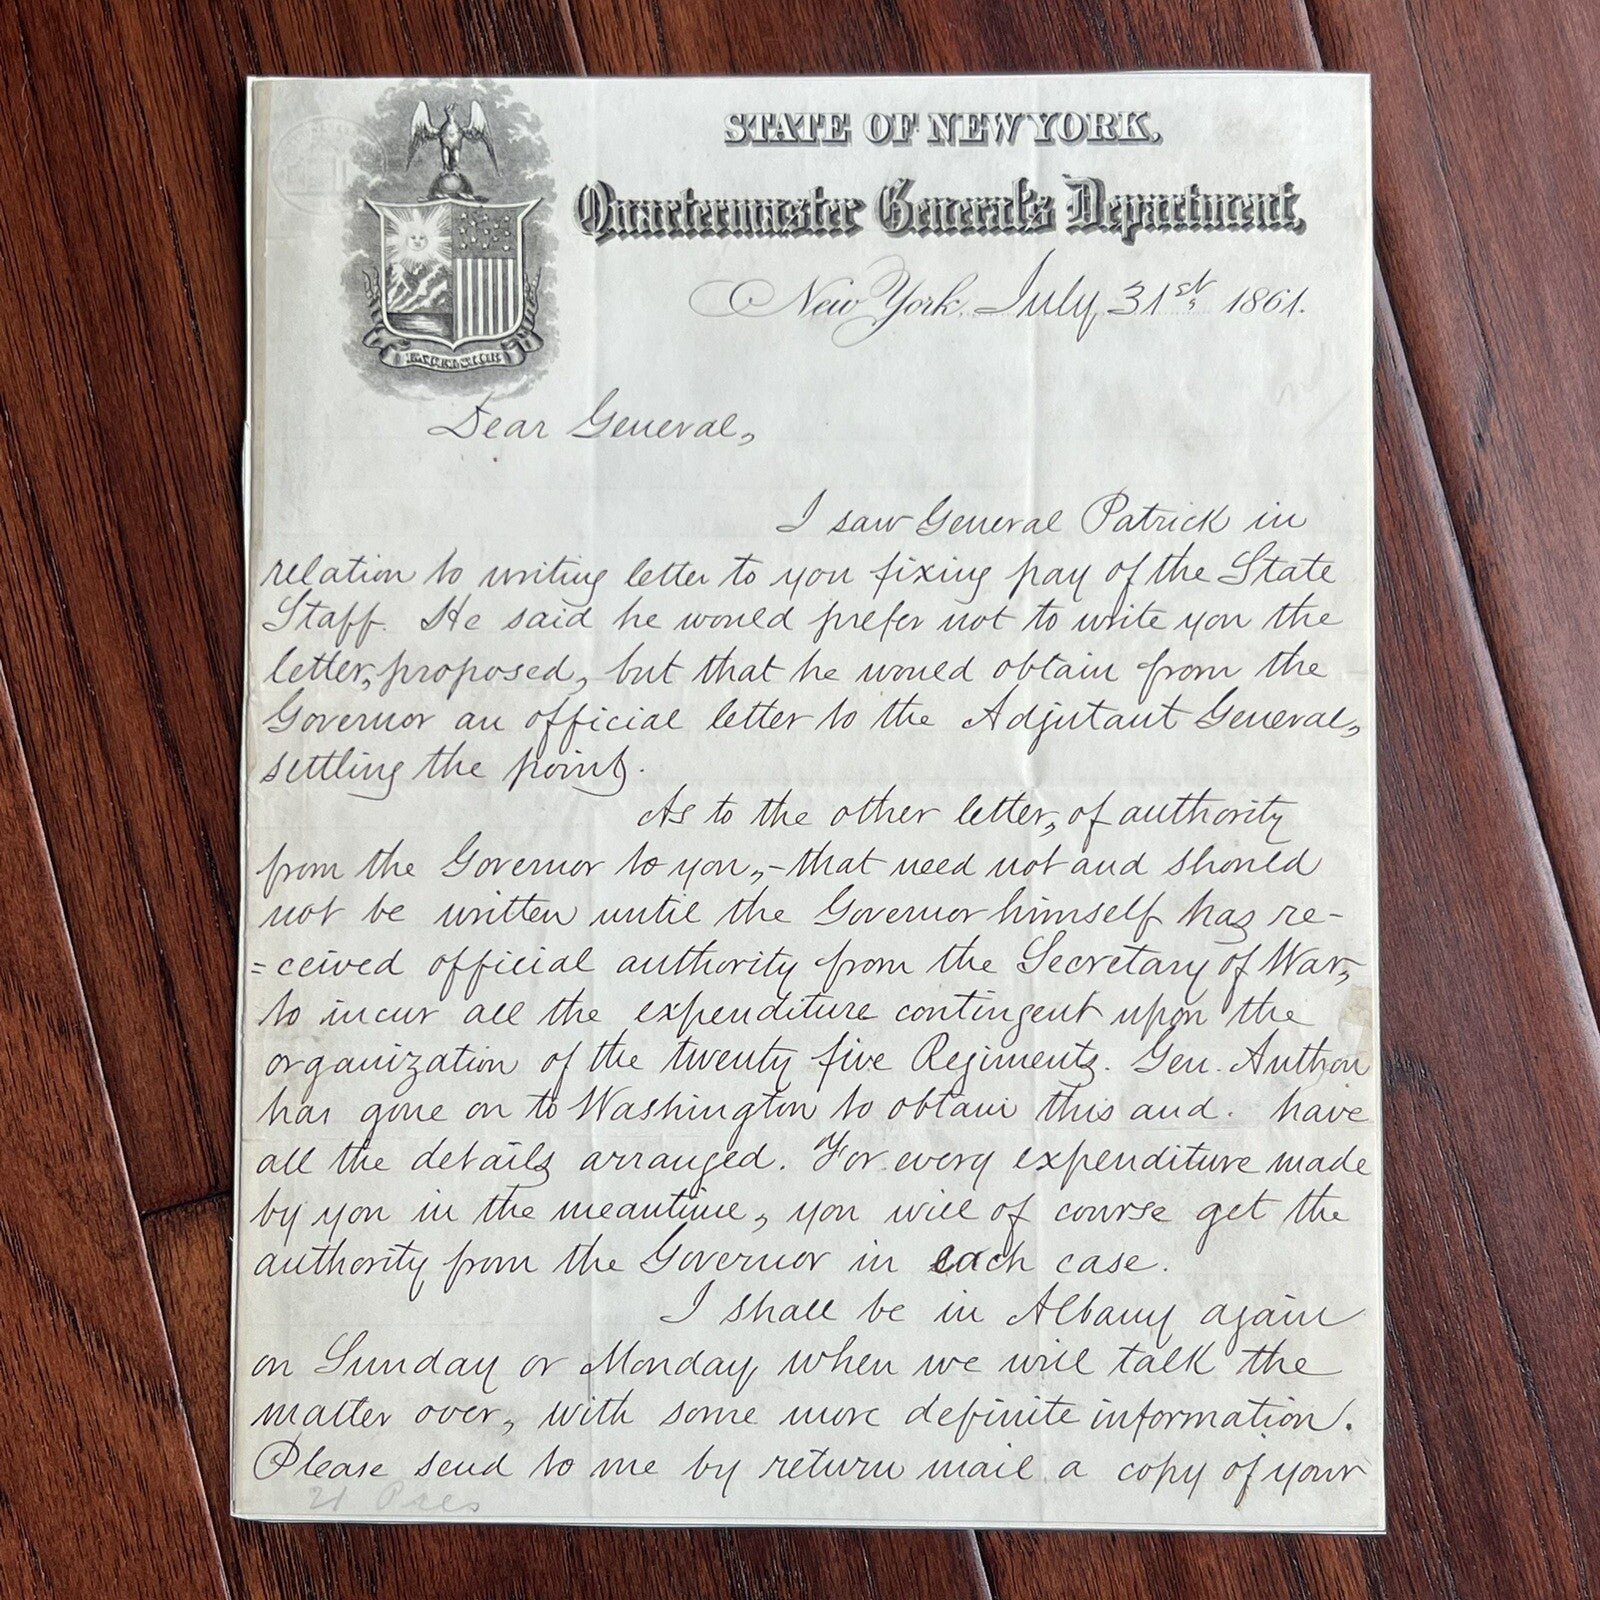 STATE OF NEW YORK.
Quartermaster General's Department,
New York, July 31st, 1861.
EXCELSIOR
Dear General,
I saw General Patrick in
relation to writing letter to you fixing pay of the State
Staff. He said he would prefer not to write you the
letter, proposed, but that he would obtain from the
Governor an official letter to the Adjutant General,
settling the point.
As to the other letter, of authority
from the Governor to you, - that need not and should
not be written until the Governor himself has re-
=ceived official authority from the Secretary of War,
to incur all the expenditure contingent upon the
organization of the twenty five Regiments. Gen. Anthon
has gone on to Washington to obtain this and. have
all the details arranged. For every expenditure made
by you in the meantime, you will of course get the
authority from the Governor in each case.
I shall be in Albany again
on Sunday or Monday, when we will talk the
matter over, with some more definite information.
Please send to me by return mail a copy of your
21 Pres